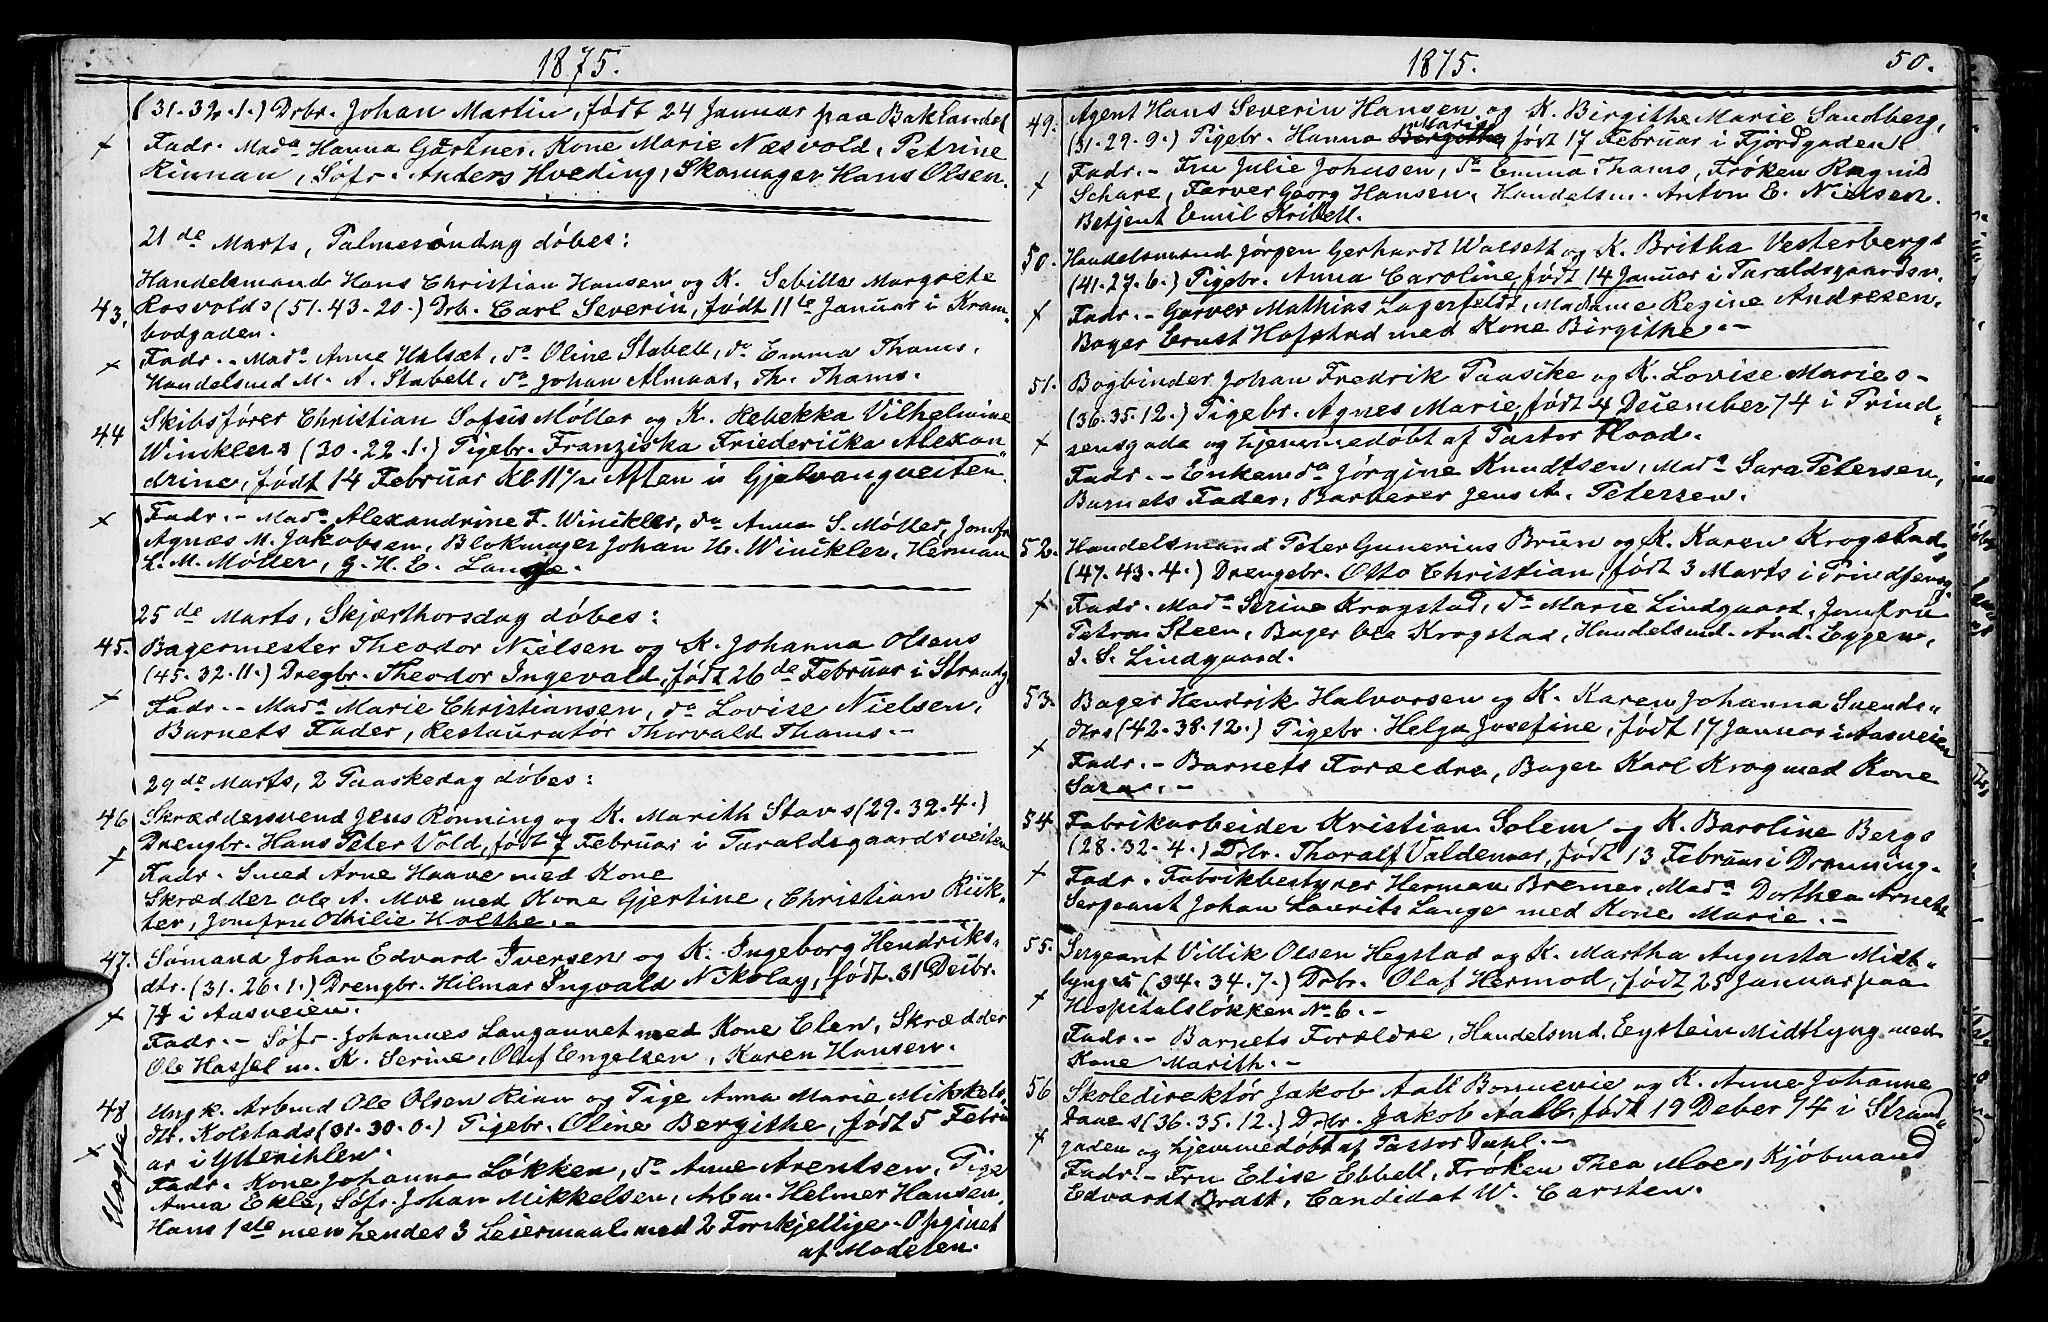 1875.
(31-32-1.) Drbr. Johan Martin, født 24 Januar paa Baklandet
Fadr. Mada Hanna Gärtner, Kone Marie Næsvold, Petrine
Rinnan, Søfr. Anders Hveding, Skomager Hans Olsen.
21de Marts, Palmesøndag døbes:
Handelsmand Hans Christian Hansen og K. Sebilla Margrete
43. Rosvolds (51-43-20.) Drb. Carl Severin, født 11te Januar i Kram-
bodgaden.
Fadr. - Mada Anne Halsæt, do Oline Stabell, do Emma Thams,
Handelsmd M. A. Stabell, do Johan Almaas, Th. Thams.
Skibsfører Christian Sofus Möller og K. Rebekka Vilhelmine
44 Winklers (30-22-1.) Pigebr. Franziska Friederikka Alexan-
drine, født 14 Februar Kl 11½ Aften i Gjelvangveiten
Fadr. - Mada Alexandrine F. Winikler, do Anna S. Möller, Jomfr
Agnæs M. Jakobsen, Blokmager Johan H. Winikler, Herman
L. M. Möller, G. H. E. Lange.
25de Marts, Skjærthorsdag døbes:
45. Bagermester Theodor Nielsen og K. Johanna Olsens
(45-32-11.) Dregbr. Theodor Ingevald, født 26de Februar i Strandg.
Fadr. - Mada Marie Christiansen, do Lovise Nielsen,
Barnets Fader, Restauratør Thorvald Thams. -
29de Marts, 2 Paaskedag døbes:
46 Skræddersvend Jens Rønning og K. Marith Stavs (29-32-4.)
Drengbr. Hans Peter Vold, født 7 Februar i Taraldsgaardsveiten
Fadr. Smed Arne Haave med Kone
Skrædder Ole A. Moe med Kone Gjertine, Christian Rik-
ter, Jomfru Othilie Holthe. -
47. Sømand Johan Edvard Iversen og K. Ingeborg Hendriks-
dtr. (31-26-1.) Drengbr. Hilmar Ingvald Nikolay, født 31 Decbr.
74 i Aasveien.
Fadr. - Søfr. Johannes Langaunet med Kone Elen, Skrædder
Ole Hassel m. K. Serine, Oluf Engelsen, Karen Hansen.
48 Ungk. Arbmd Ole Olsen Rian og Pige Anna Marie Mikkels-
dtr. Kolstads (31-30-0.) Pigebr. Oline Bergithe, født 5 Febru
ar i Ytterihlen.
Uægte
Fadr. Kone Johanna Løkken, do Anne Arentsen, Pige
Anna Ekle, Søfr. Johan Mikkelsen, Arbm. Helmer Hansen,
Hans 1ste men hendes 3 Leiermaal med 2 Forskjellige. Opgivet
af Moderen.
1875. 50.
49. Agent Hans Severin Hansen og K. Birgithe Marie Sandberg,
(31-29-9.) Pigebr. Hanna Birgitha Marie født 17 Februar i Fjordgaden
Fadr. - Fru Julie Johnsen, do Emma Thams, Frøken Ragnid
Schare, Farver Georg Hansen, Handelsm. Anton E. Nielsen.
Betjent Emil Kribell.
50. Handelsmand Jørgen Gerhardt Walseth og K. Britha Vesterbergs
(41-27-6.) Pigebr. Anna Caroline, født 14 Januar i Taraldsgaardsv.
Fadr. - Garver Mathias Lagerfeldt, Madame Regine Andresen,
Bager Ernst Hofstad med Kone Birgithe. -
51. Bogbinder Johan Fredrik Paasike og K. Lovise Maries -
(36-35-12.) Pigebr. Agnes Marie, født 4 December 74 i Prind-
sensgade og hjemmedøbt af Pastor Hood.
Fadr. - Enkemda Jørgine Knudtsen, Mada Sara Petersen,
Barnets Fader, Barberer Jens A. Petersen.
52. Handelsmand Peter Gunerius Brun og K. Karen Krogstads
(47-43-4.) Drengebr. Otto Christian, født 3 Marts i Prindsensg.
Fadr. Mada Serine Krogstad, do Marie Lindgaard, Jomfru
Petra Steen, Bager Ole Krogstad, Handelsmd. And. Eggen,
I. S. Lindgaard.
53. Bager Hendrik Halvorsen og K. Karen Johanna Svends-
dtrs (42-38-12.) Pigebr. Helga Josefine, født 17 Januar i Aasveien
Fadr. - Barnets Forældre, Bager Karl Krog med Kone
Sara. -
54. Fabrikarbeider Kristian Solem og K. Baroline Bergs
(28-32-4.) Drbr. Thoralf Valdemar, født 13 Februar i Dronning-
Fadr. Fabrikbestyrer Herman Bremer, Mada Dorthea Arnets
Sergeant Johan Laurits Lange med Kone Marie. -
55. Sergeant Villik Olsen Hegstad og K. Martha Augusta Midt-
lyngs (34-34-7.) Drbr. Olaf Hermod, født 25 Januar paa
Hospitalsløkken No 6. -
Fadr. - Barnets Forældre, Handelsmd. Eystein Midtlyng med
Kone Marith. -
56 Skoledirektør Jakob Aall Bonnevie og K. Anne Johanne
Daaes (36-35-12.) Drbr. Jakob Aall, født 19 Deber 74 i Strand-
gaden og hjemmedøbt af Pastor Dahl. -
Fadr. - Fru Elise Ebbell, Frøken Thea Moe, Kjøbmand
Edvardt Bratt, Candidat W. Carsten.